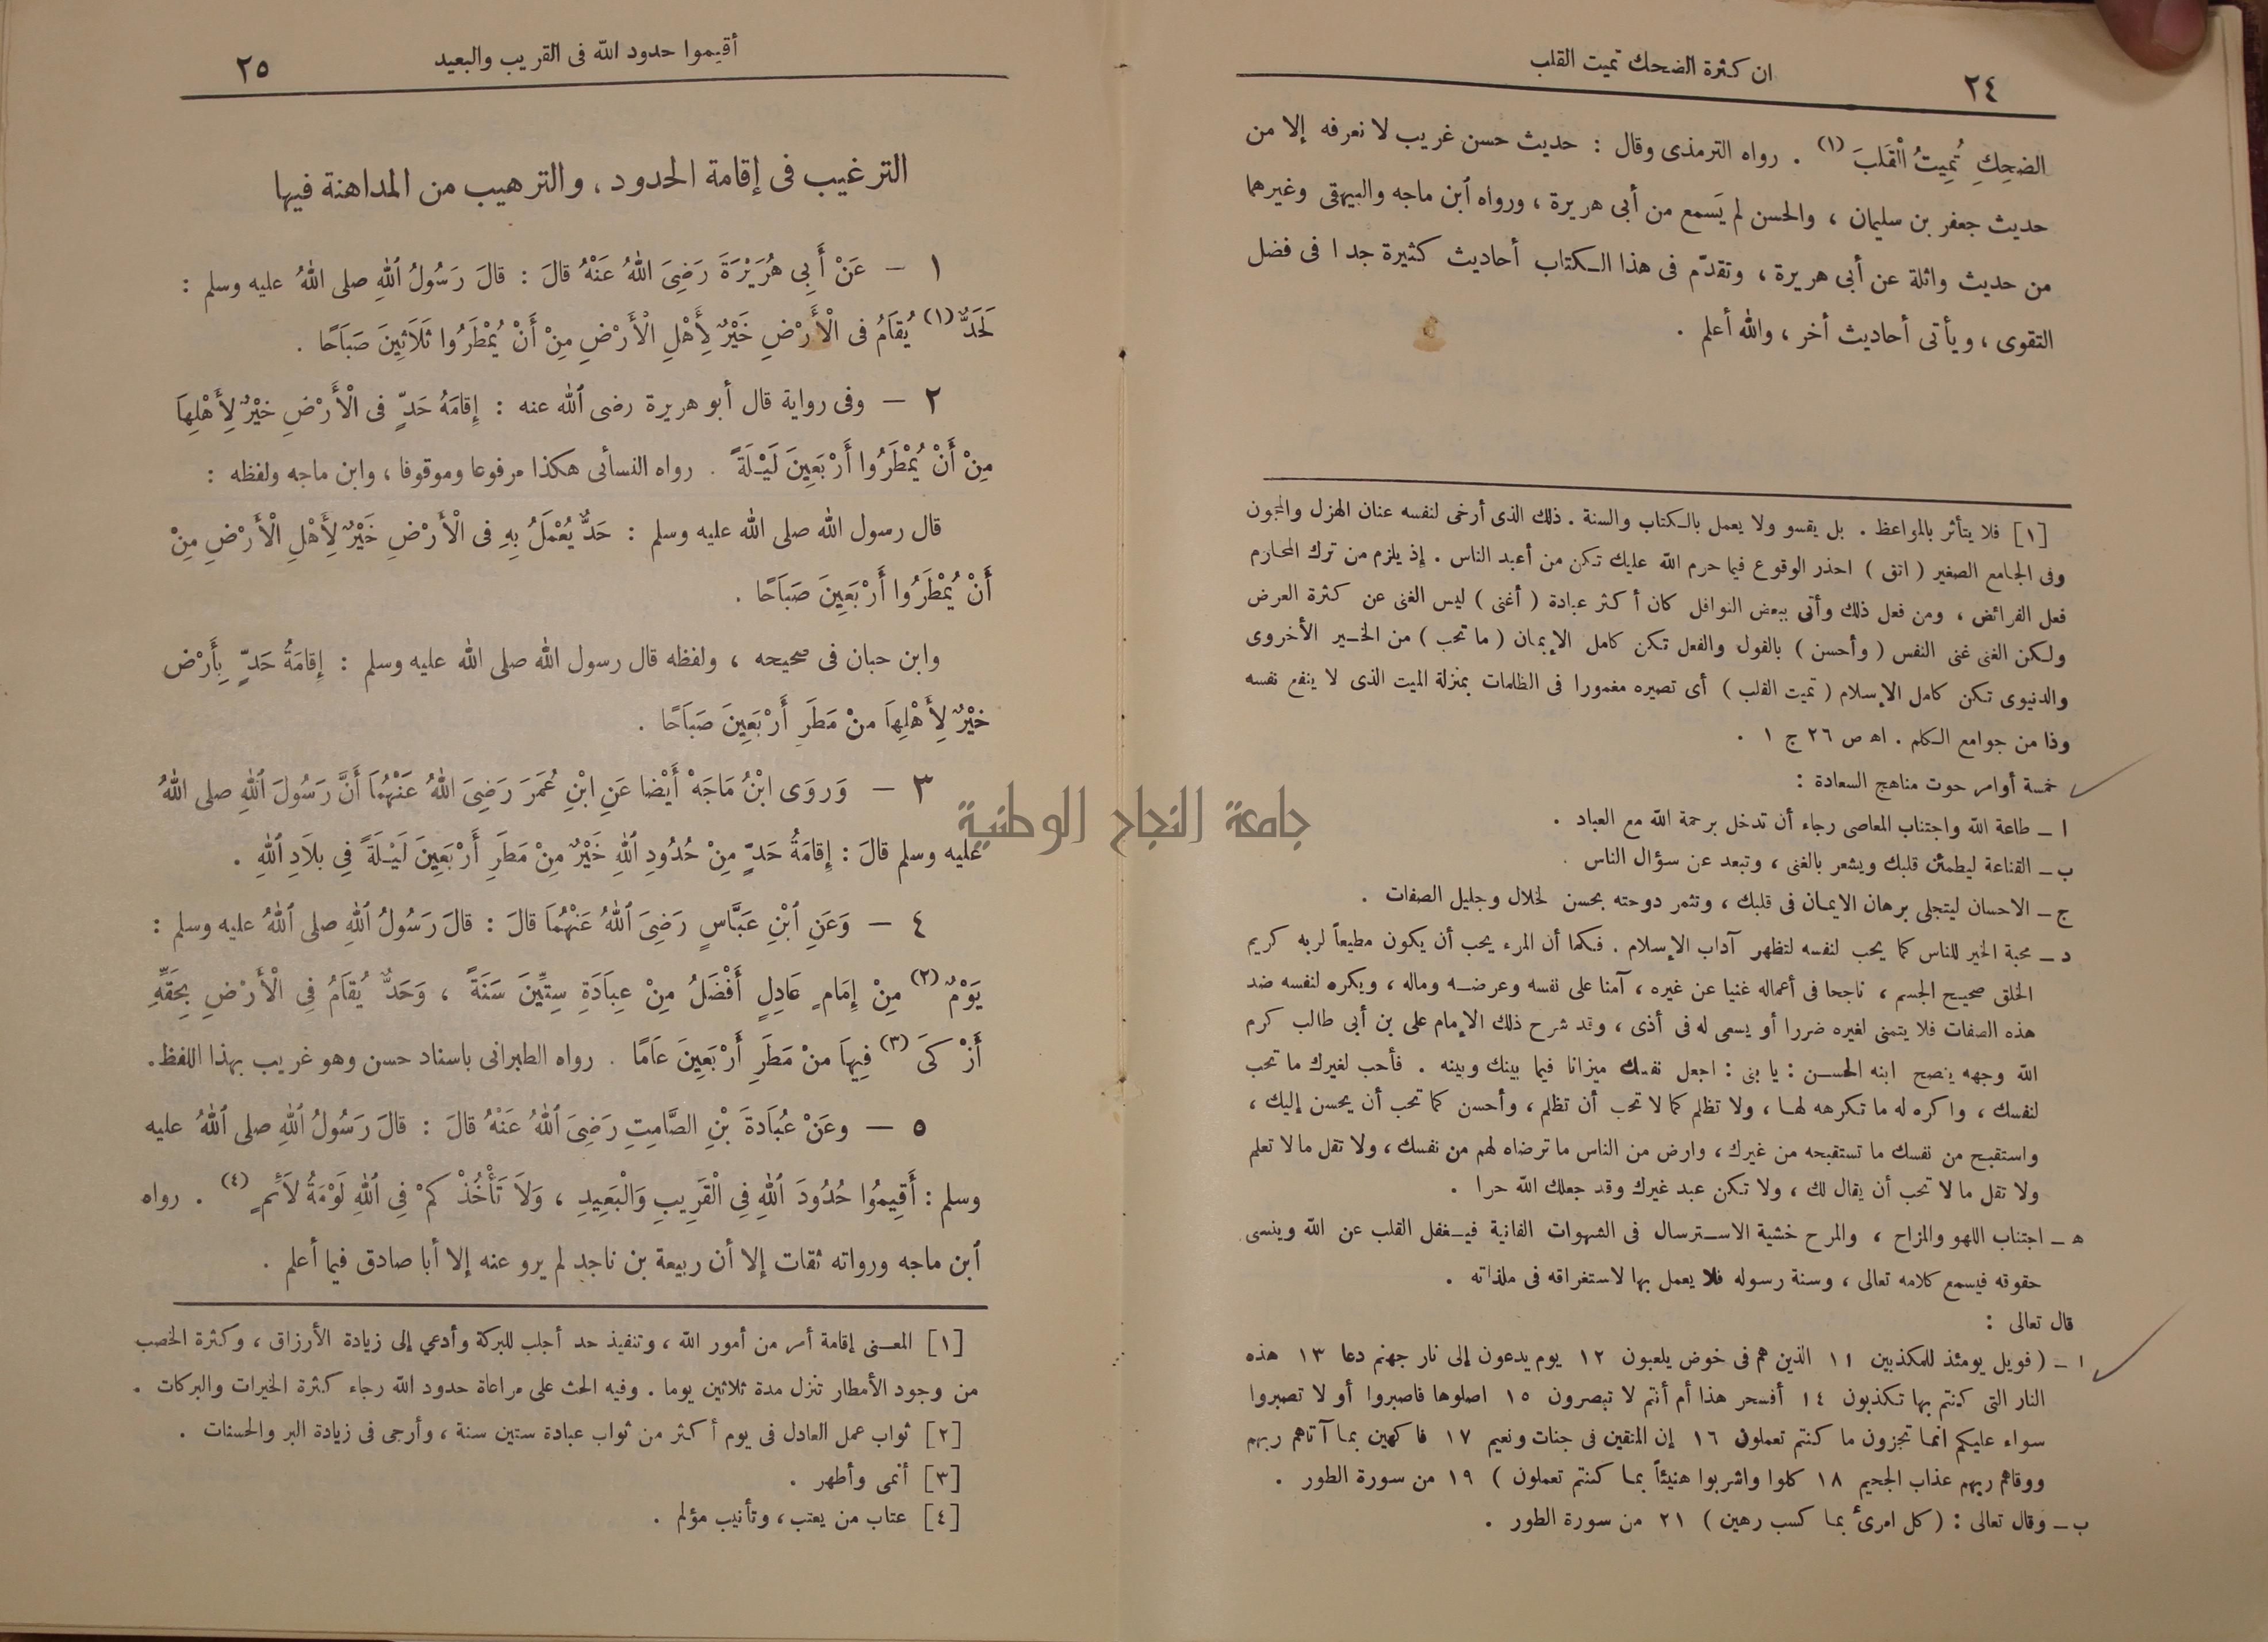 ٢٤
ان كثرة الضحك تميت القلب
الضحِكِ تُمِيتُ الْقَلبَ (١) . رواه الترمذى وقال : حديث حسن غريب لا نعرفه إلا من
حديث جعفر بن سليمان ، والحسن لم يَسمع من أبى هريرة ، ورواه ٱبن ماجه والبيهقى وغيرهما
من حديث واثلة عن أبى هريرة ، وتقدّم فى هذا الكتاب أحاديث كثيرة جدا فى فضل
التقوى ، ويأتى أحاديث أخر ، والله أعلم .
[١] فلا يتأثر بالمواعظ . بل يقسو ولا يعمل بالكتاب والسنة . ذلك الذى أرخى لنفسه عنان الهزل والمجون
وفى الجامع الصغير ( اتق ) احذر الوقوع فيما حرم الله عليك تكن من أعبد الناس . إذ يلزم من ترك المحارم
فعل الفرائض ، ومن فعل ذلك وأتى ببعض النوافل كان أكثر عبادة ( أغنى ) ليس الغنى عن كثرة العرض
ولكن الغنى غنى النفس ( وأحسن ) بالقول والفعل تكن كامل الإيمان ( ما تحب ) من الخير الأخروى
والدنيوى تكن كامل الإسلام ( تميت القلب ) أى تصيره مغمورا فى الظلمات بمنزلة الميت الذى لا ينفع نفسه
وذا من جوامع الكلم . اه ص ٢٦ ج ١ .
خمسة أوامر حوت مناهج السعادة :
ا ـ طاعة الله واجتناب المعاصى رجاء أن تدخل برحمة الله مع العباد .
ب ـ القناعة ليطمئن قلبك ويشعر بالغنى ، وتبعد عن سؤال الناس .
ج ـ الاحسان ليتجلى برهان الايمان فى قلبك ، وتثمر دوحته بحسن لخلال وجليل الصفات .
د ـ محبة الخير للناس كما يحب لنفسه لتظهر آداب الإسلام . فكما أن المرء يحب أن يكون مطيعاً لربه كريم
الخلق صحيح الجسم ، ناجحا فى أعماله غنيا عن غيره ، آمنا على نفسه وعرضه وماله ، ويكره لنفسه ضد
هذه الصفات فلا يتمنى لغيره ضررا أو يسعى له فى أذى ، وقد شرح ذلك الإمام على بن أبى طالب كرم
الله وجهه ينصح ابنه الحسن : يا بنى : اجعل نفسك ميزانا فيما بينك وبينه . فأحب لغيرك ما تحب
لنفسك ، واكره له ما تكرهه لها ، ولا تظلم كما لا تحب أن تظلم ، وأحسن كما تحب أن يحسن إليك ،
واستقبح من نفسك ما تستقبحه من غيرك ، وارض من الناس ما ترضاه لهم من نفسك ، ولا تقل ما لا تعلم
ولا تقل ما لا تحب أن يقال لك ، ولا تكن عبد غيرك وقد جعلك الله حرا .
ه ـ اجتناب اللهو والمزاح ، والمرح خشية الاسترسال فى الشهوات الفانية فيغفل القلب عن الله وينسى
حقوقه فيسمع كلامه تعالى ، وسنة رسوله فلا يعمل بها لاستغراقه فى ملذاته .
قال تعالى :
ا ـ ( فويل يومئذ للمكذبين ١١ الذين هم فى خوض يلعبون ١٢ يوم يدعون إلى نار جهنم دعا ١٣ هذه
النار التى كنتم بها تكذبون ١٤ أفسحر هذا أم أنتم لا تبصرون ١٥ اصلوها فاصبروا أو لا تصبروا
سواء عليكم انما تجزون ما كنتم تعملون ١٦ إن المتقين فى جنات ونعيم ١٧ فاكهين بما آتاهم ربهم
ووقاهم ربهم عذاب الجحيم ١٨ كلوا واشربوا هنيئاً بما كنتم تعملون ) ١٩ من سورة الطور .
ب ـ وقال تعالى : ( كل امرئ بما كسب رهين ) ٢١ من سورة الطور .
جامعة النجاح الوطنية
أقيموا حدود الله فى القريب والبعيد
٢٥
الترغيب فى إقامة الحدود ، والترهيب من المداهنة فيها
١ – عَنْ أَبِى هُرَيْرَةَ رَضِىَ اللهُ عَنْهُ قالَ : قالَ رَسُولُ ٱللهِ صلى اللهُ عليه وسلم :
لَحَدٌّ (١) يُقَامُ فى الْأَرْضِ خَيْرٌ لِأَهْلِ الْأَرْضِ مِنْ أَنْ يُمْطَرُوا ثَلَاثِينَ صَبَاحًا .
٢ – وفى رواية قال أبو هريرة رضى ٱلله عنه : إِقامَةُ حَدٍّ فى الْأَرْضِ خيْرٌ لِأَهْلِهَا
مِنْ أَنْ يُمْطَرُوا أَرْبَعِينَ لَيْلَةً . رواه النسائى هكذا مرفوعا وموقوفا ، وابن ماجه ولفظه :
قال رسول الله صلى الله عليه وسلم : حَدٌّ يُعْمَلُ بِهِ فى الْأَرْضِ خَيْرٌ لِأَهْلِ الْأَرْضِ مِنْ
أَنْ يُمْطَرُوا أَرْبَعِينَ صَبَاحًا .
وابن حبان فى صحيحه ، ولفظه قال رسول الله صلى الله عليه وسلم : إِقامَةُ حَدٍّ بِأَرْض
خيْرٌ لِأَهْلِهَا منْ مَطَرِ أَرْبَعِينَ صَبَاحًا .
٣ – وَروَى ابْنُ مَاجَهْ أَيْضا عَنِ ابْنِ عُمَرَ رَضِىَ اللهُ عَنْهُمَا أَنَّ رَسُولَ ٱللهِ صلى اللهُ
عليه وسلم قالَ : إِقامَةُ حَدٍّ مِنْ حُدُودِ ٱللهِ خَيْرٌ مِنْ مَطَرِ أَرْبَعِينَ لَيْلَةً فِى بلاَدِ ٱللهِ .
٤ – وَعَنِ ٱبْنِ عَبَّاسٍ رَضِىَ ٱللهُ عَنْهُمَا قالَ : قالَ رَسُولُ ٱللهِ صلى ٱللهُ عليه وسلم :
يَوْمٌ (٢) مِنْ إِمَامٍ عَادِلٍ أَفْضَلُ مِنْ عِبَادَةِ سِتِّينَ سَنَةً ، وَحَدٌّ يُقَامُ فِى الْأَرْضِ بِحَقِّهِ
أَزْكَىَ (٣) فِيهَا منْ مَطَرِ أَرْبَعِينَ عَامًا . رواه الطبرانى باسناد حسن وهو غريب بهذا اللفظ.
٥ – وعَنْ عُبَادَةَ بْنِ الصَّامِتِ رَضِىَ ٱللهُ عَنْهُ قالَ : قالَ رَسُولُ ٱللهِ صلى ٱللهُ عليه
وسلم : أَقِيمُوا حُدُودَ ٱللهِ فِى الْقَرِيبِ وَالْبَعِيدِ ، وَلاَ تَأْخُذْكمْ فِى ٱللهِ لَوْمَةُ لاَئمٍ (٤) . رواه
ٱبن ماجه ورواته ثقات إلا أن ربيعة بن ناجد لم يرو عنه إلا أبا صادق فيما أعلم .
[١] المعنى إقامة أمر من أمور الله ، وتنفيذ حد أجلب للبركة وأدعي إلى زيادة الأرزاق ، وكثرة الخصب
من وجود الأمطار تنزل مدة ثلاثين يوما . وفيه الحث على مراعاة حدود الله رجاء كثرة الخيرات والبركات .
[٢] ثواب عمل العادل فى يوم أكثر من ثواب عبادة ستين سنة ، وأرجى فى زيادة البر والحسنات .
[٣] أنمى وأطهر .
[٤] عتاب من يعتب ، وتأنيب مؤلم .